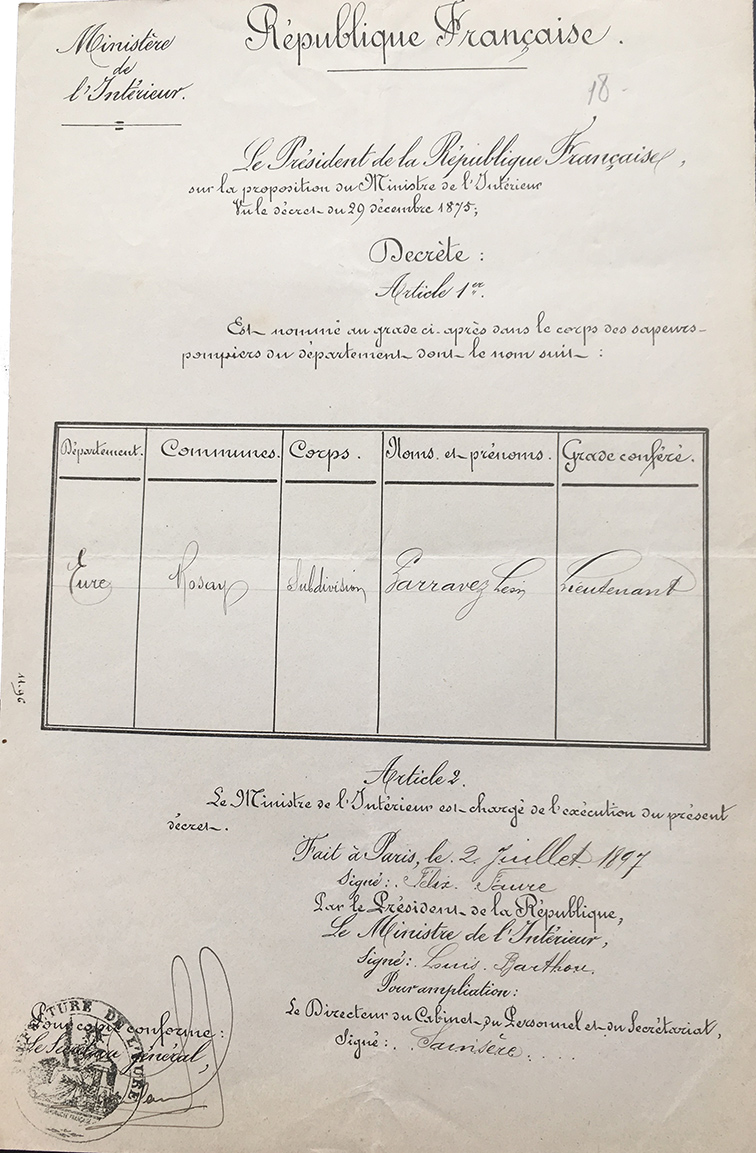 Ministère
de
l'Intérieur.
République Française.
18-
Le Président de la République Française,
sur la proposition du Ministre de l'Intérieur
Vu le décret du 29 décembre 1875;
Decrète :
Article 1er.
Est nommé au grade ci-après dans le corps des sapeurs-
pompiers du département dont le nom suit :
Département. Communes. Corps. Noms et prénoms. Grade conféré.
Eure Rosay Subdivision Farravez Lieutenant
11.96
Article 2.
Le Ministre de l'Intérieur est chargé de l'exécution du présent
décret.
Fait à Paris, le 2 Juillet 1897
Signé: Félix Faure
Par le Président de la République,
Le Ministre de l'Intérieur,
Signé: Louis Barthou.
Pour ampliation:
Le Directeur du Cabinet du Personnel et du Secrétariat,
Signé: Sainsère
Pour copie conforme:
Le Secrétaire Général,
PRÉFECTURE DE L'EURE